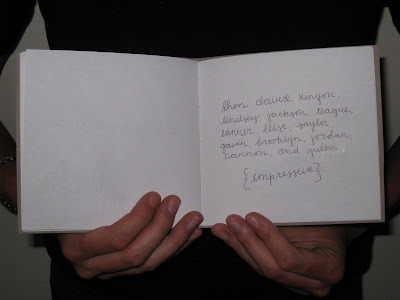 then david, xinyou,
lindsey, jackson, teague,
tanner, elise, jayla,
gavin, brooklyn, jordan,
cannon, and quinn.
{impressive}